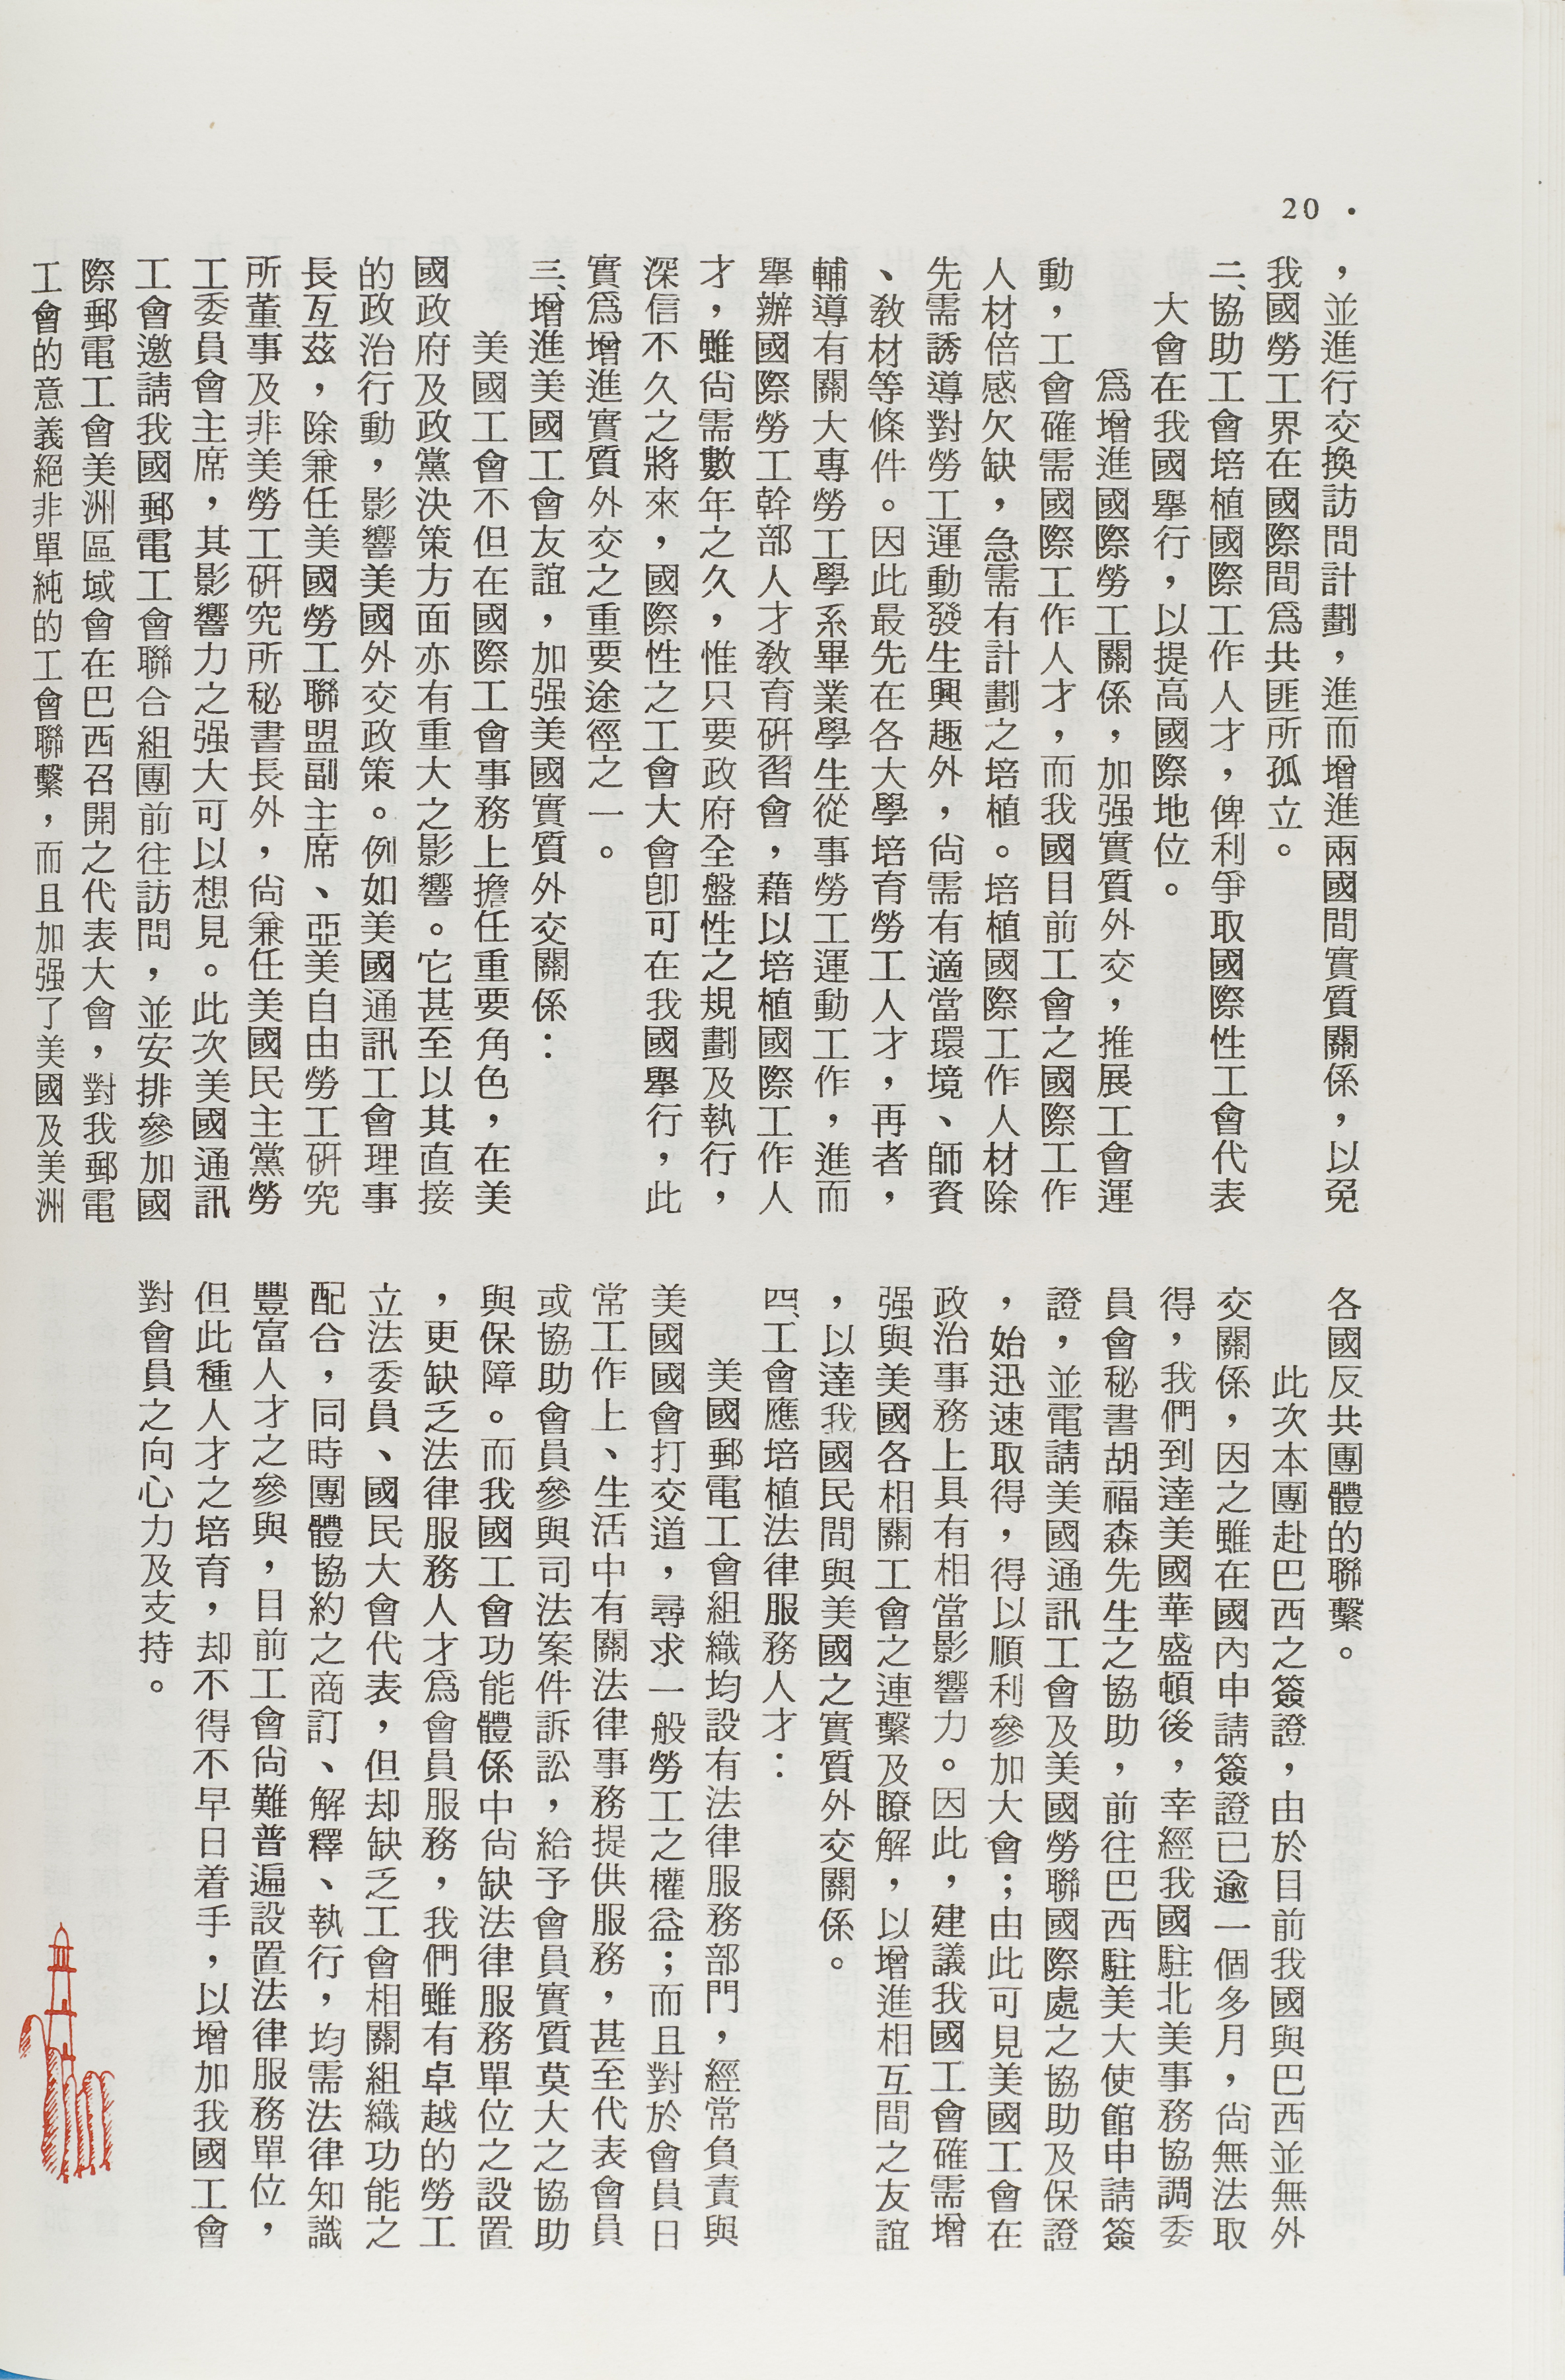 20 ·
，並進行交換訪問計劃，進而增進兩國間實質關係，以免
我國勞工界在國際間爲共匪所孤立。
二、協助工會培植國際工作人才，俾利爭取國際性工會代表
大會在我國舉行，以提高國際地位。
爲增進國際勞工關係，加强實質外交，推展工會運
動，工會確需國際工作人才，而我國目前工會之國際工作
人材倍感欠缺，急需有計劃之培植。培植國際工作人材除
先需誘導對勞工運動發生興趣外，尙需有適當環境、師資
、敎材等條件。因此最先在各大學培育勞工人才，再者，
輔導有關大專勞工學系畢業學生從事勞工運動工作，進而
舉辦國際勞工幹部人才敎育硏習會，藉以培植國際工作人
才，雖尙需數年之久，惟只要政府全盤性之規劃及執行，
深信不久之將來，國際性之工會大會卽可在我國舉行，此
實爲增進實質外交之重要途徑之一。
三、增進美國工會友誼，加强美國實質外交關係：
美國工會不但在國際工會事務上擔任重要角色，在美
國政府及政黨決策方面亦有重大之影響。它甚至以其直接
的政治行動，影響美國外交政策。例如美國通訊工會理事
長瓦茲，除兼任美國勞工聯盟副主席、亞美自由勞工硏究
所董事及非美勞工硏究所秘書長外，尙兼任美國民主黨勞
工委員會主席，其影響力之强大可以想見。此次美國通訊
工會邀請我國郵電工會聯合組團前往訪問，並安排參加國
際郵電工會美洲區域會在巴西召開之代表大會，對我郵電
工會的意義絕非單純的工會聯繫，而且加强了美國及美洲
各國反共團體的聯繫。
此次本團赴巴西之簽證，由於目前我國與巴西並無外
交關係，因之雖在國內申請簽證已逾一個多月，尙無法取
得，我們到達美國華盛頓後，幸經我國駐北美事務協調委
員會秘書胡福森先生之協助，前往巴西駐美大使館申請簽
證，並電請美國通訊工會及美國勞聯國際處之協助及保證
，始迅速取得，得以順利參加大會；由此可見美國工會在
政治事務上具有相當影響力。因此，建議我國工會確需增
强與美國各相關工會之連繫及瞭解，以增進相互間之友誼
，以達我國民間與美國之實質外交關係。
四、工會應培植法律服務人才：
美國郵電工會組織均設有法律服務部門，經常負責與
美國國會打交道，尋求一般勞工之權益；而且對於會員日
常工作上、生活中有關法律事務提供服務，甚至代表會員
或協助會員參與司法案件訴訟，給予會員實質莫大之協助
與保障。而我國工會功能體係中尙缺法律服務單位之設置
，更缺乏法律服務人才爲會員服務，我們雖有卓越的勞工
立法委員、國民大會代表，但却缺乏工會相關組織功能之
配合，同時團體協約之商訂、解釋、執行，均需法律知識
豐富人才之參與，目前工會尙難普遍設置法律服務單位，
但此種人才之培育，却不得不早日着手，以增加我國工會
對會員之向心力及支持。